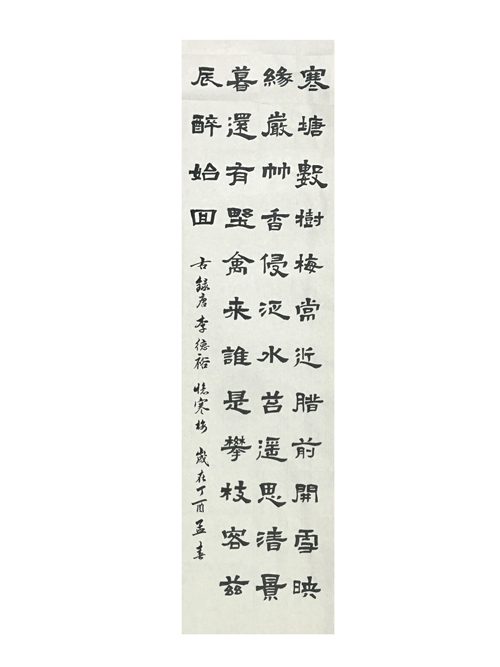 寒塘數樹梅常近腊前開雪映
緣巖竹香侵泛水苔遥思清景
暮還有野禽来誰是攀枝容兹
辰醉始回
右録唐李德裕憶寒梅 歲在丁酉孟春